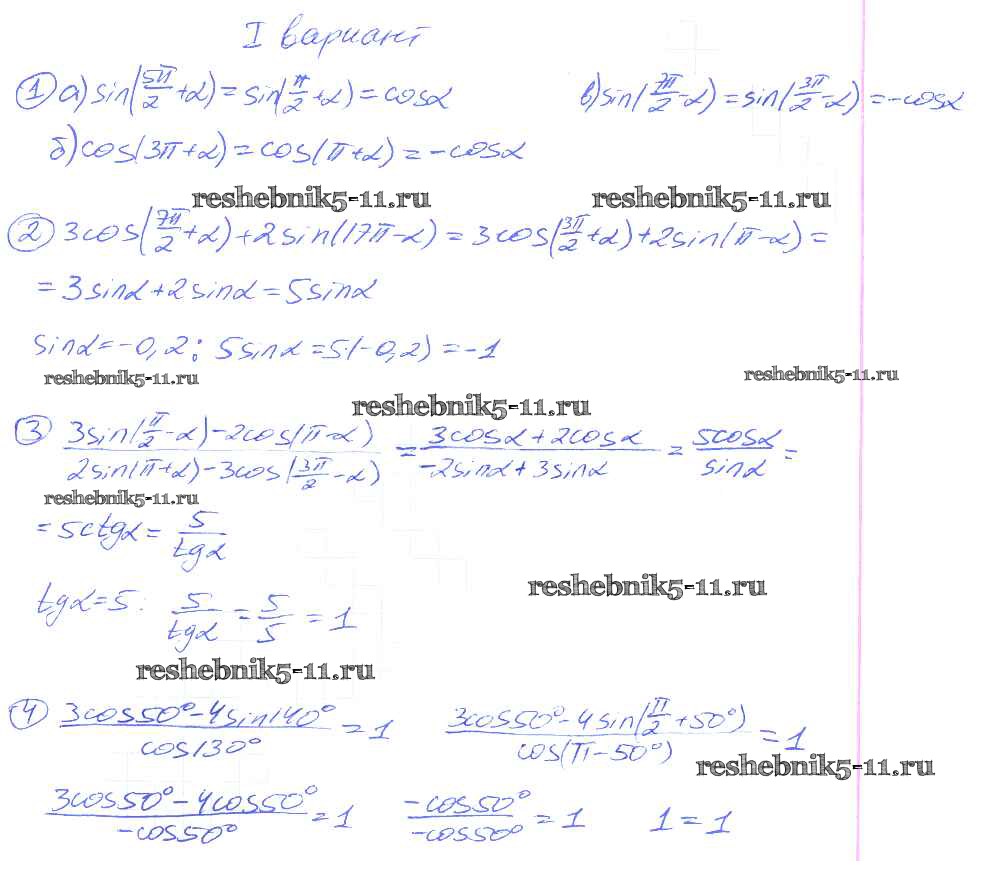 I вариант
1 а) sin(5π/2 + α) = sin(π/2 + α) = cosα
в) sin(7π/2 - α) = sin(3π/2 - α) = -cosα
б) cos(3π + α) = cos(π + α) = -cosα
reshebnik5-11.ru reshebnik5-11.ru
2 3cos(7π/2 + α) + 2sin(17π - α) = 3cos(3π/2 + α) + 2sin(π - α) =
= 3sinα + 2sinα = 5sinα
sinα = -0,2: 5sinα = 5(-0,2) = -1
reshebnik5-11.ru reshebnik5-11.ru
reshebnik5-11.ru
3 (3sin(π/2 - α) - 2cos(π - α))/(2sin(π + α) - 3cos(3π/2 - α)) = (3cosα + 2cosα)/(-2sinα + 3sinα) = 5cosα/sinα =
reshebnik5-11.ru
= 5ctgα = 5/tgα
reshebnik5-11.ru
tgα = 5: 5/tgα = 5/5 = 1
reshebnik5-11.ru
4 (3cos50° - 4sin140°)/cos130° = 1 (3cos50° - 4sin(π/2 + 50°))/cos(π - 50°) = 1
reshebnik5-11.ru
(3cos50° - 4cos50°)/(-cos50°) = 1 -cos50°/-cos50° = 1 1 = 1